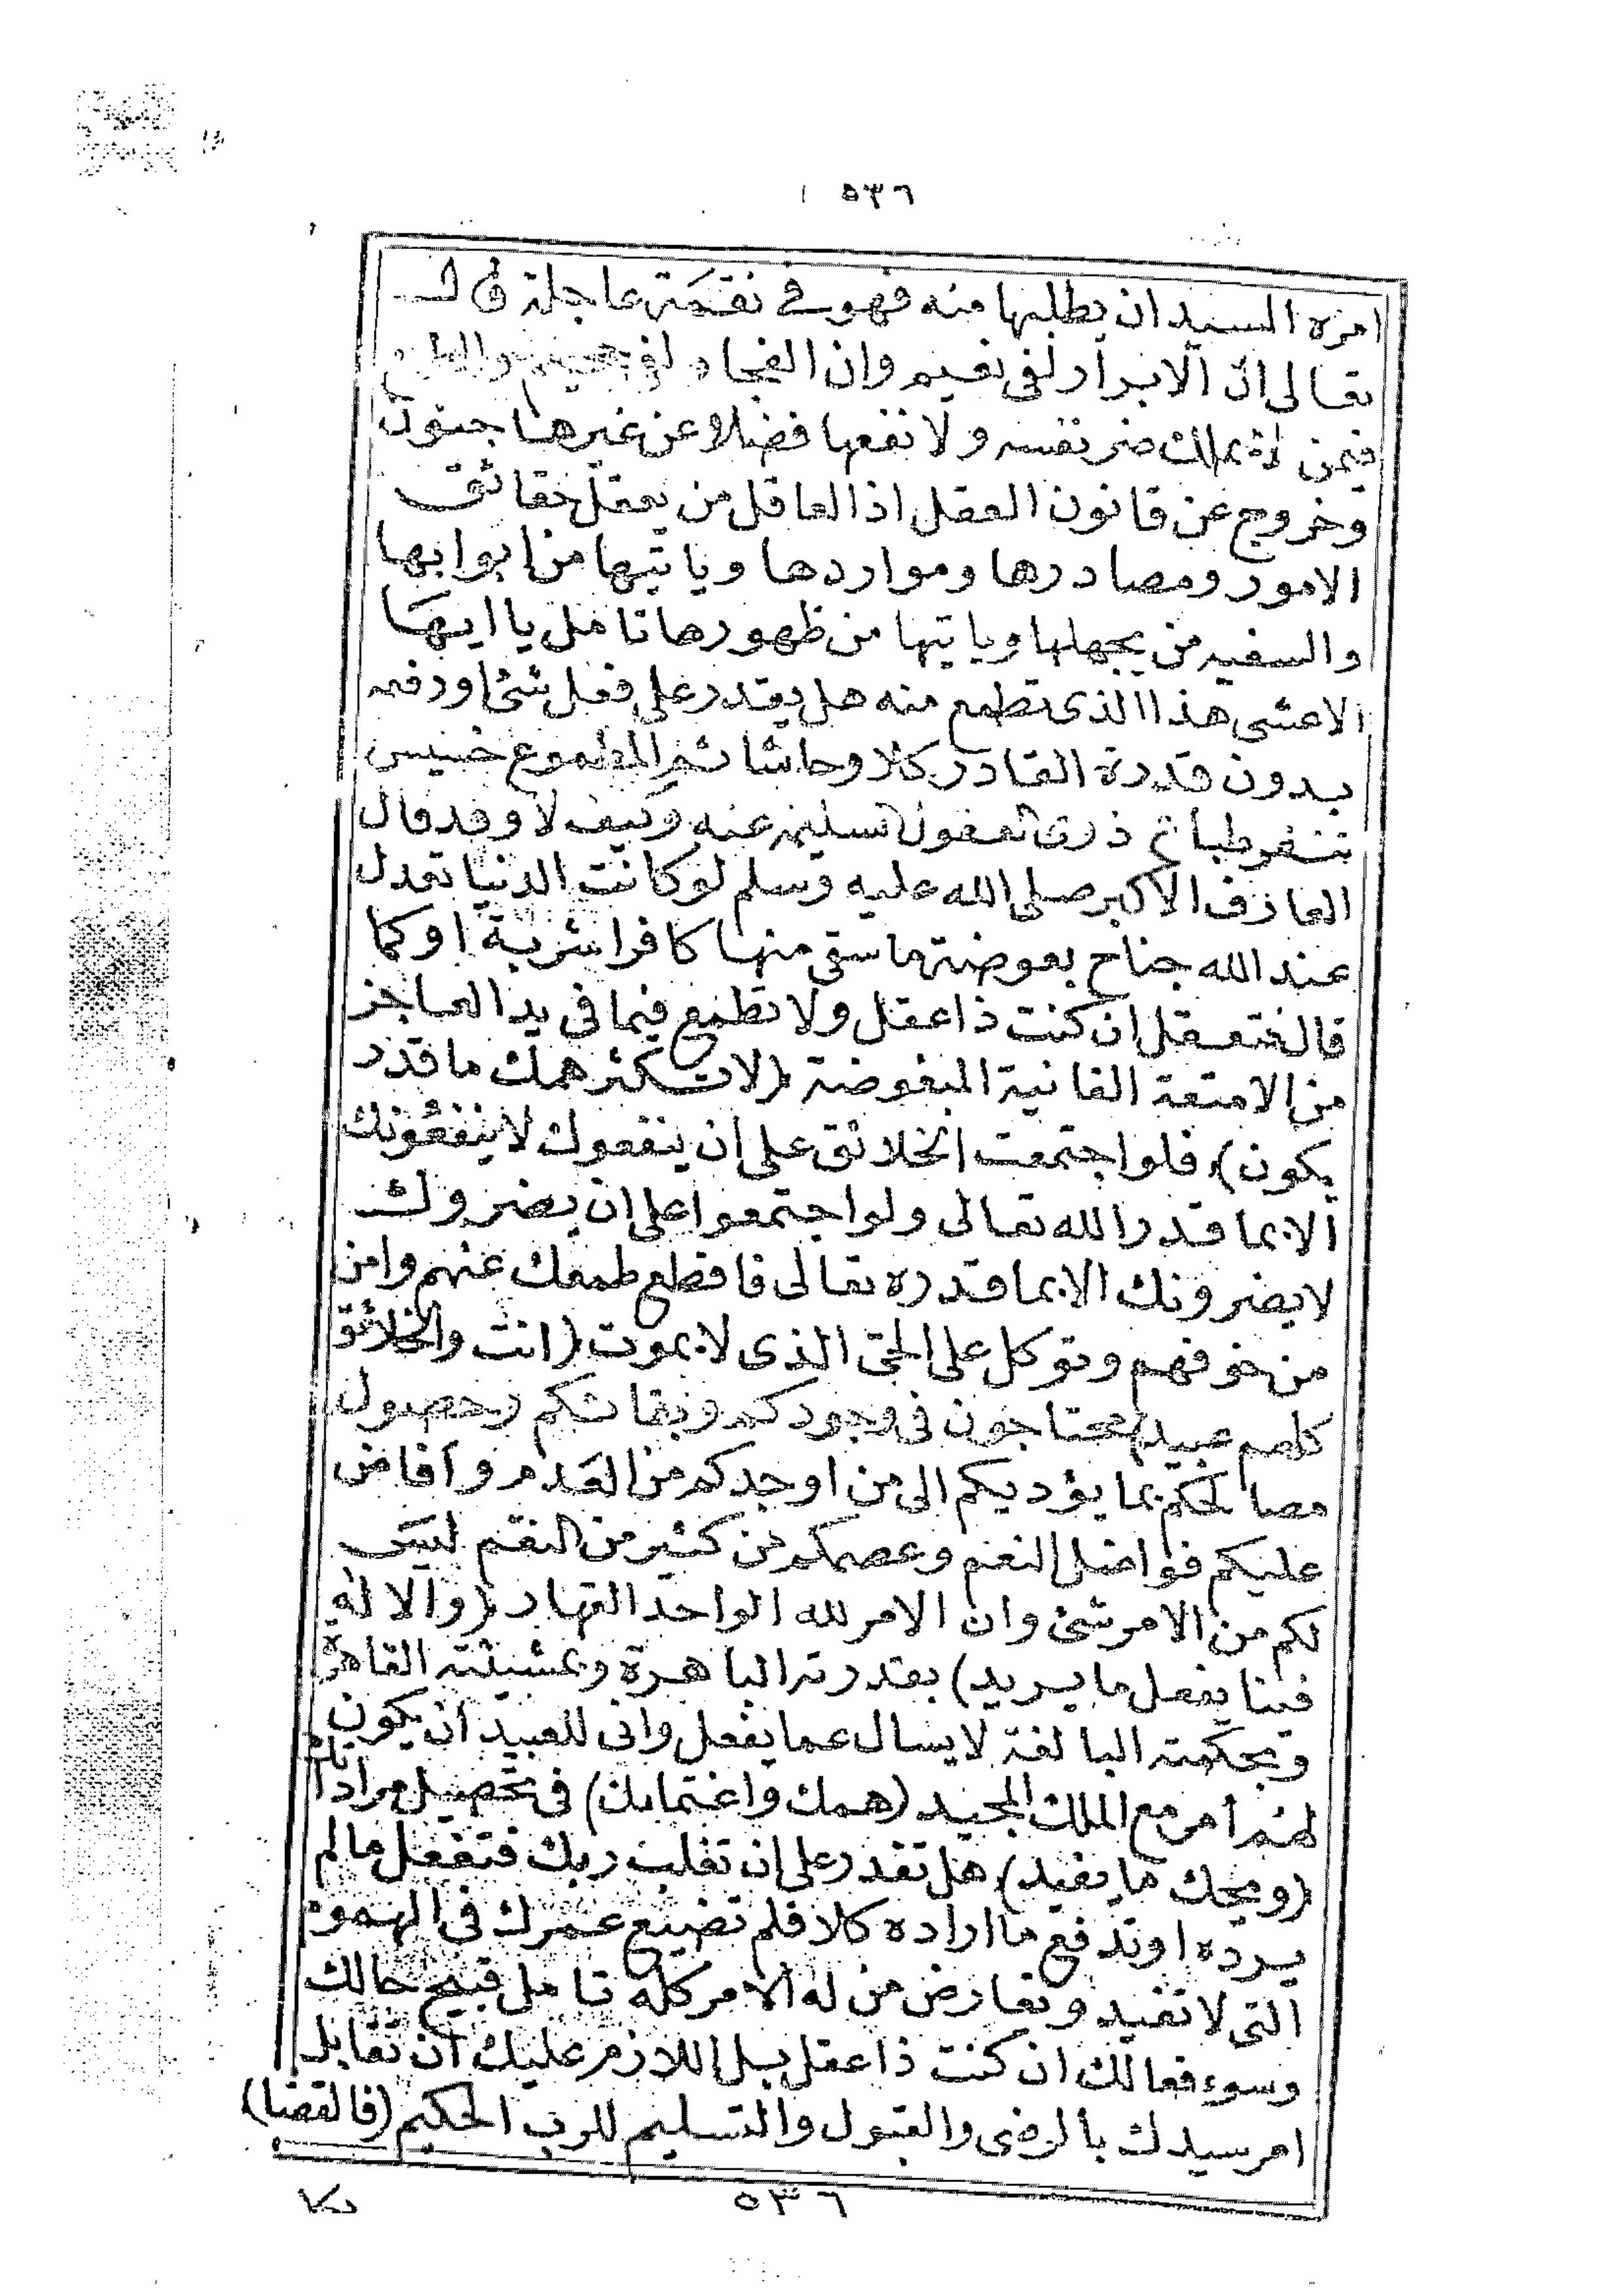 ٥٣٦
امره السيد ان يطلبها منه فهو في نقمة عاجلة قال
تعالى ان الابرار لفى نعيم وان الفجار لفى جحيم والطمع
فيمن لا يملك ضر نفسه ولا نفعها فضلا عن غيرها جنون
وخروج عن قانون العقل اذ العاقل من يعقل حقائق
الامور ومصادرها ومواردها وياتيها من ابوابها
والسفيه من يجهلها وياتيها من ظهورها تامل يا ايها
الاعشى هذا الذى تطمع منه هل يقدر على فعل شئ اودفعه
بدون قدرة القادر كلا وحاشا ثم المطموع خسيس
تنفر طباع ذوى العقول السليمة عنه وكيف لا وقد قال
العارف الاكبر صلى الله عليه وسلم لو كانت الدنيا تعدل
عند الله جناح بعوضة ما سقى منها كافرا شربة او كما
قال فتعقل ان كنت ذا عقل ولا تطمع فيما فى يد العاجز
من الامتعة الفانية المبغوضة (لا تكثر همك ما قدر
يكون) فلو اجتمعت الخلائق على ان ينفعوك لا ينفعونك
الا بما قدر الله تعالى ولو اجتمعوا على ان يضروك
لا يضرونك الا بما قدره تعالى فاقطع طمعك عنهم وامن
من خوفهم وتوكل على الحى الذى لا يموت (انت والخلائق
كلهم عبيد) محتاجون فى وجودكم وبقائكم وحصول
مصالحكم بما يؤديكم الى من اوجدكم من العدم وافاض
عليكم فواضل النعم وعصمكم من كثير من النقم ليس
لكم من الامر شئ وان الامر لله الواحد القهار (والاله
فينا يفعل ما يريد) بقدرته الباهرة وبمشيئته القاهرة
وبحكمته البالغة لا يسال عما يفعل وانى للعبيد ان يكون
لهم امر مع الملك المجيد (همك واغتمامك) فى تحصيل مراداتك
(ويحك ما يفيد) هل تقدر على ان تغلب ربك فتفعل ما لم
يرده او تدفع ما اراده كلا فلم تضيع عمرك فى الهموم
التى لا تفيد وتعارض من له الامر كله تامل قبيح حالك
وسوء فعالك ان كنت ذا عقل بل اللازم عليك ان تقابل
امر سيدك بالرضى والقبول والتسليم للرب الحكيم (فالقضا)
٥٣٦